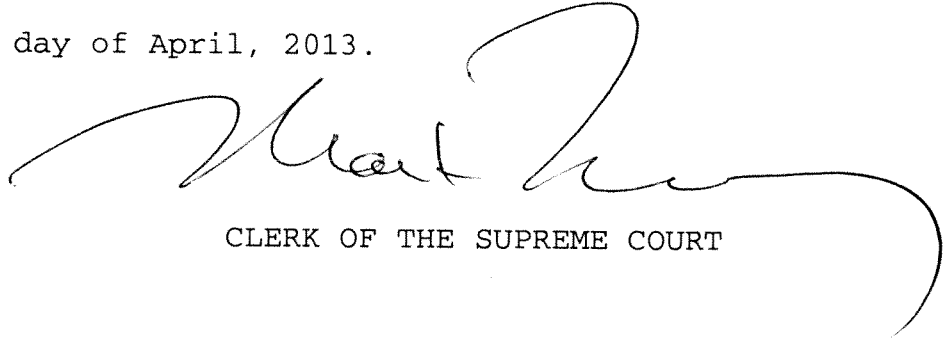 day of April, 2013.
Mark
CLERK OF THE SUPREME COURT